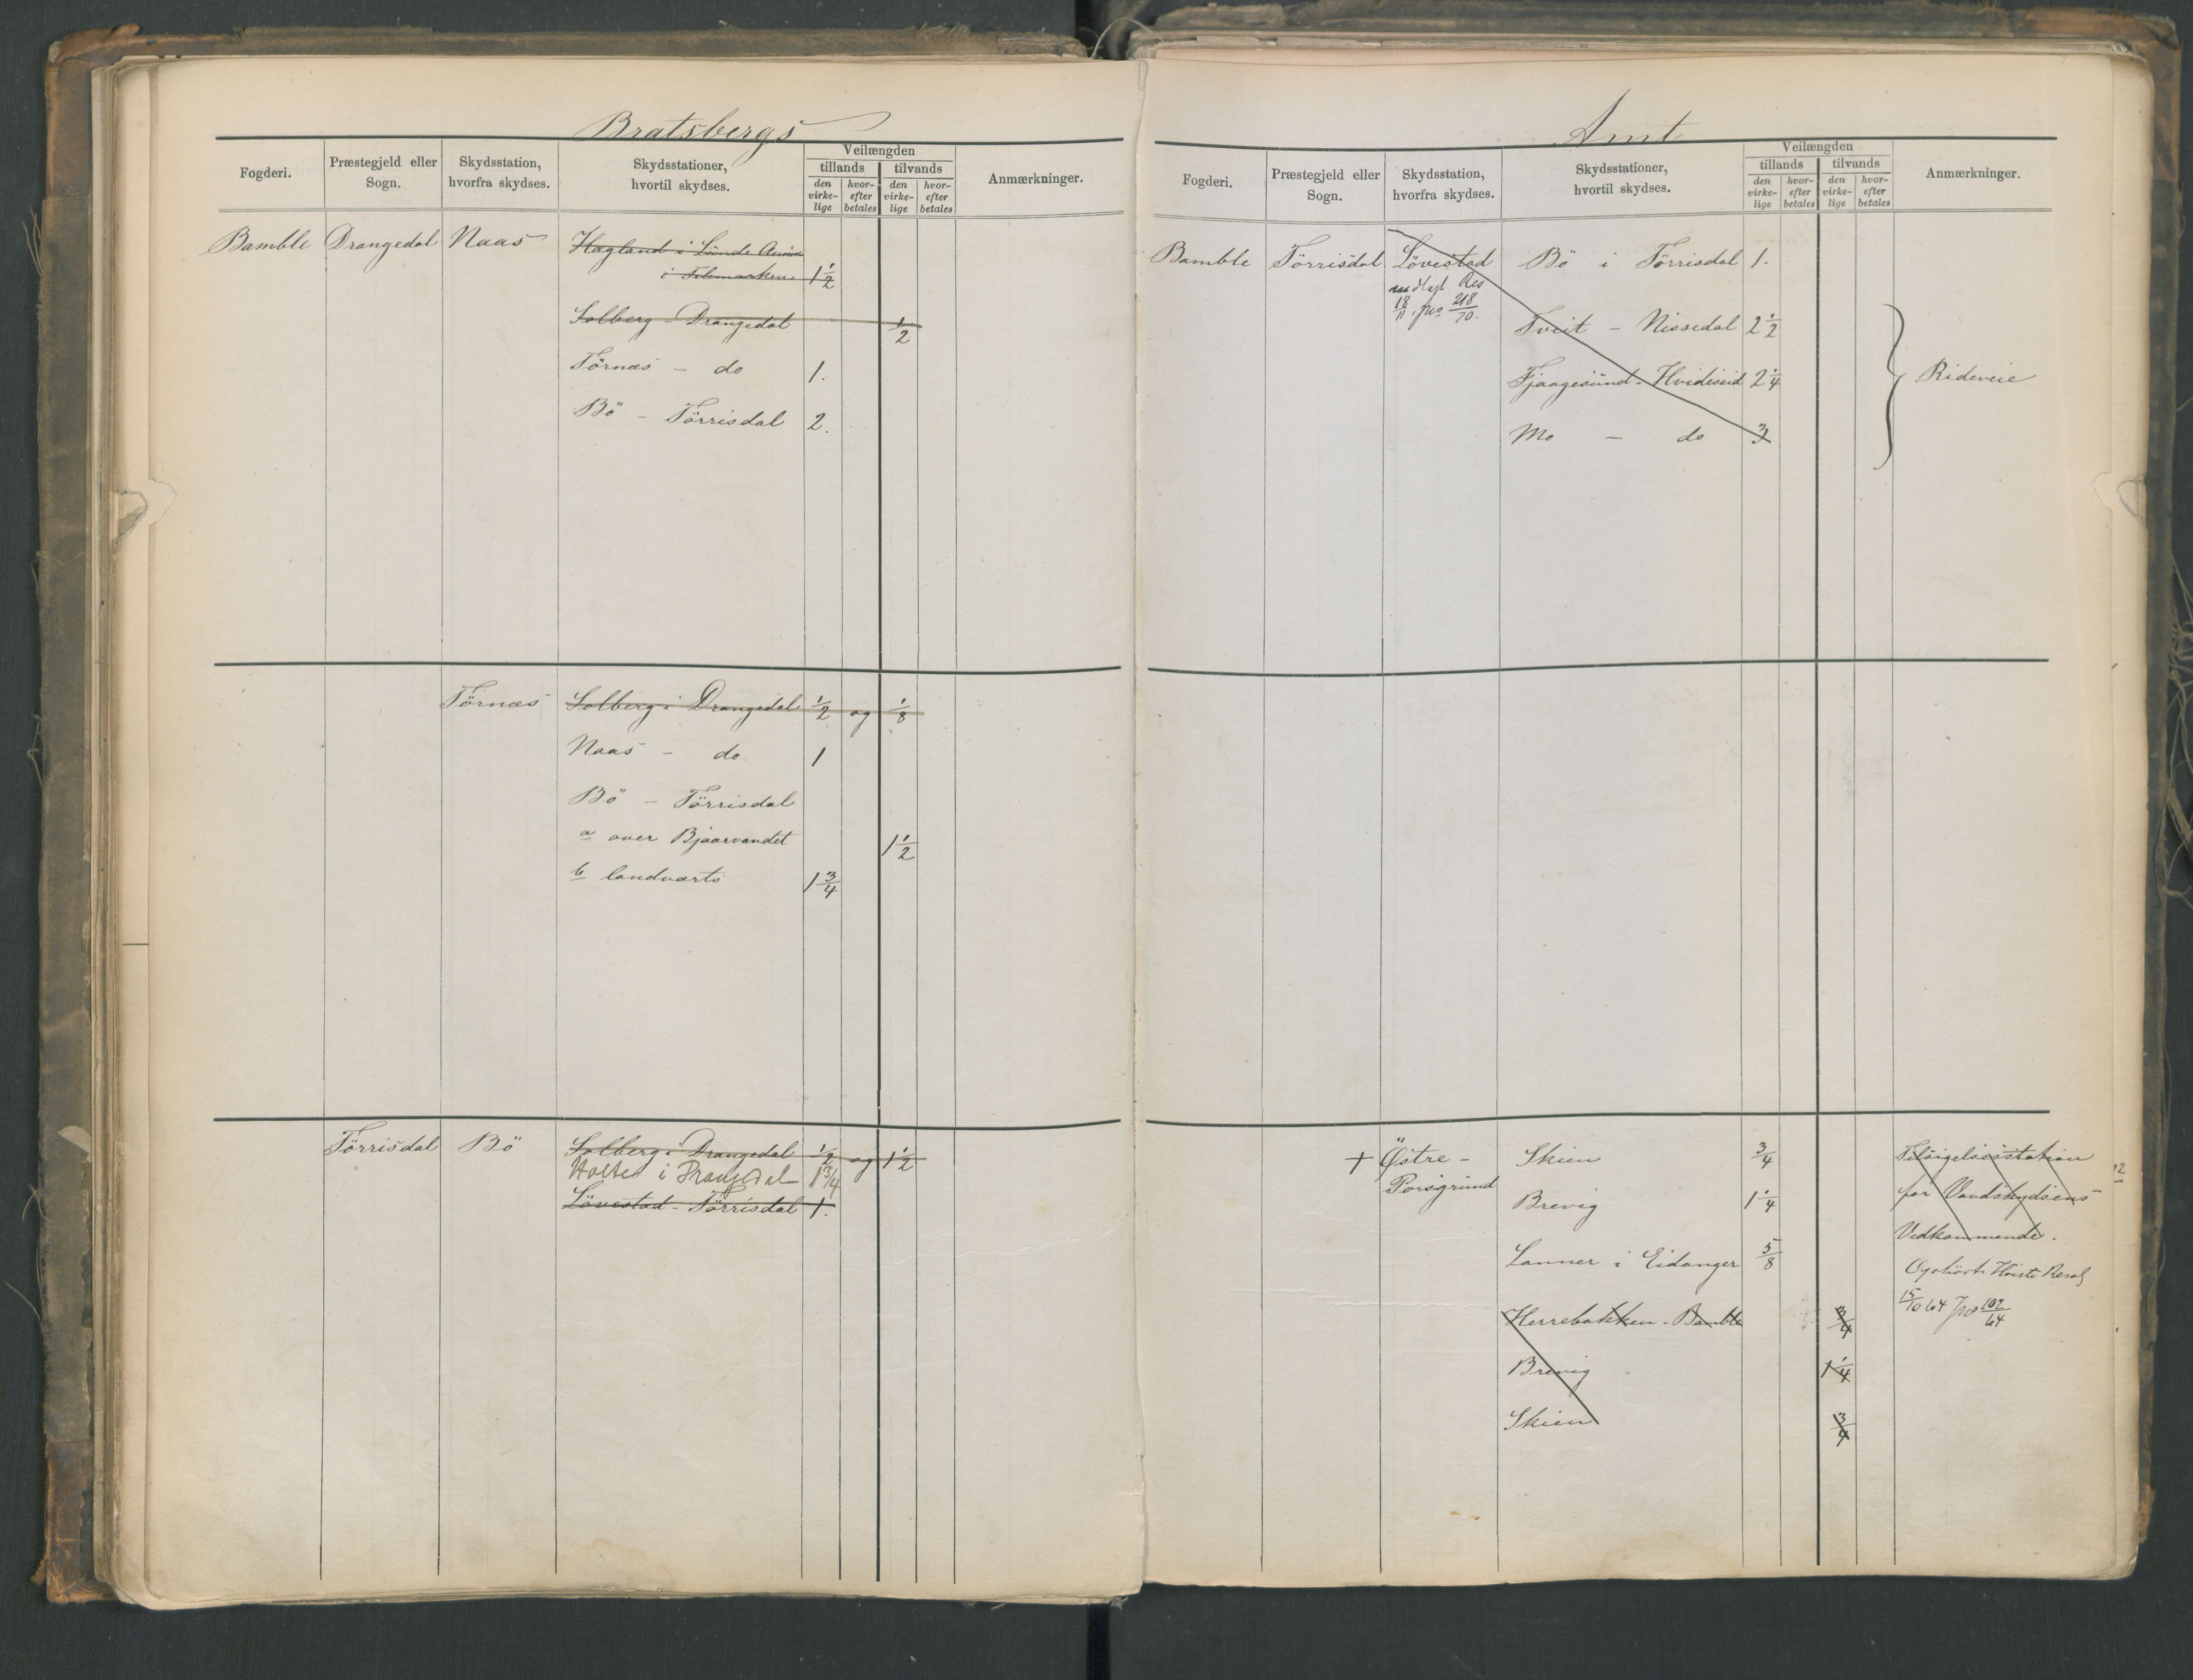 Bratsbergs
Fogderi. Præstegjeld eller Sogn. Skydsstation, hvorfra skydses. Skydsstationer, hvortil skydses. Veilængden tillands den virke-lige hvor-efter betales tilvands den virke-lige hvor-efter betales Anmærkninger.
Bamble Drangedal Naas Hagland i Lunde
i Telemarken 1 1/2
Solberg - Drangedal 1/2
Törnæs - do 1.
Bö - Törrisdal 2.
Törnæs Solberg i Drangedal 1/2 og 1/8
Naas - do 1
Bö - Törrisdal
a over Bjaarvandet 1 1/2
b landværts 1 3/4
Törrisdal Bö Solberg i Drangedal 1/2 og 1 1/2
Holte i Drangedal 1 3/4
Lövestad - Törrisdal 1.
Amt
Fogderi. Præstegjeld eller Sogn. Skydsstation, hvorfra skydses. Skydsstationer, hvortil skydses. Veilængden tillands den virke-lige hvor-efter betales tilvands den virke-lige hvor-efter betales Anmærkninger.
Bamble Törrisdal Lövestad Bö i Törrisdal 1.
nedlagt Res
18/11 jno 218/70.
Tveit - Nissedal 2 1/2
Fjaagesund - Hvideseid 2 1/4 Rideveie
Mo - do 3
+ Østre - Skien 3/4 Tilsigelsesstation
Porsgrund Brevig 1 1/4 for Vandskydsens
Vedkommende.
Lanner i Eidanger 5/8
Ophört Höiste Resol
15/10 64 Jno 102/64
Herrebakken - Bamble 3/4
Brevig 1 1/4
Skien 3/4
12